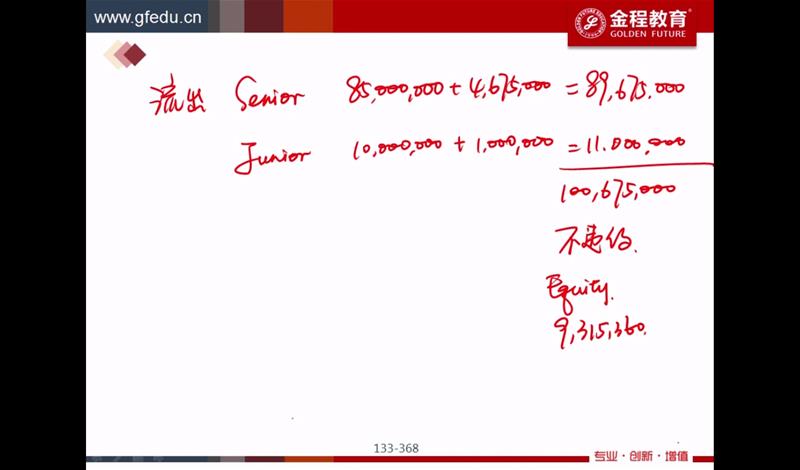 www.gfedu.cn
金程教育®
GOLDEN FUTURE
流出 Senior 85,000,000 + 4,675,000 = 89,675,000
Junior 10,000,000 + 1,000,000 = 11.000,000
100,675,000
不违约.
Equity.
9,315,360.
133-368
专业·创新·增值